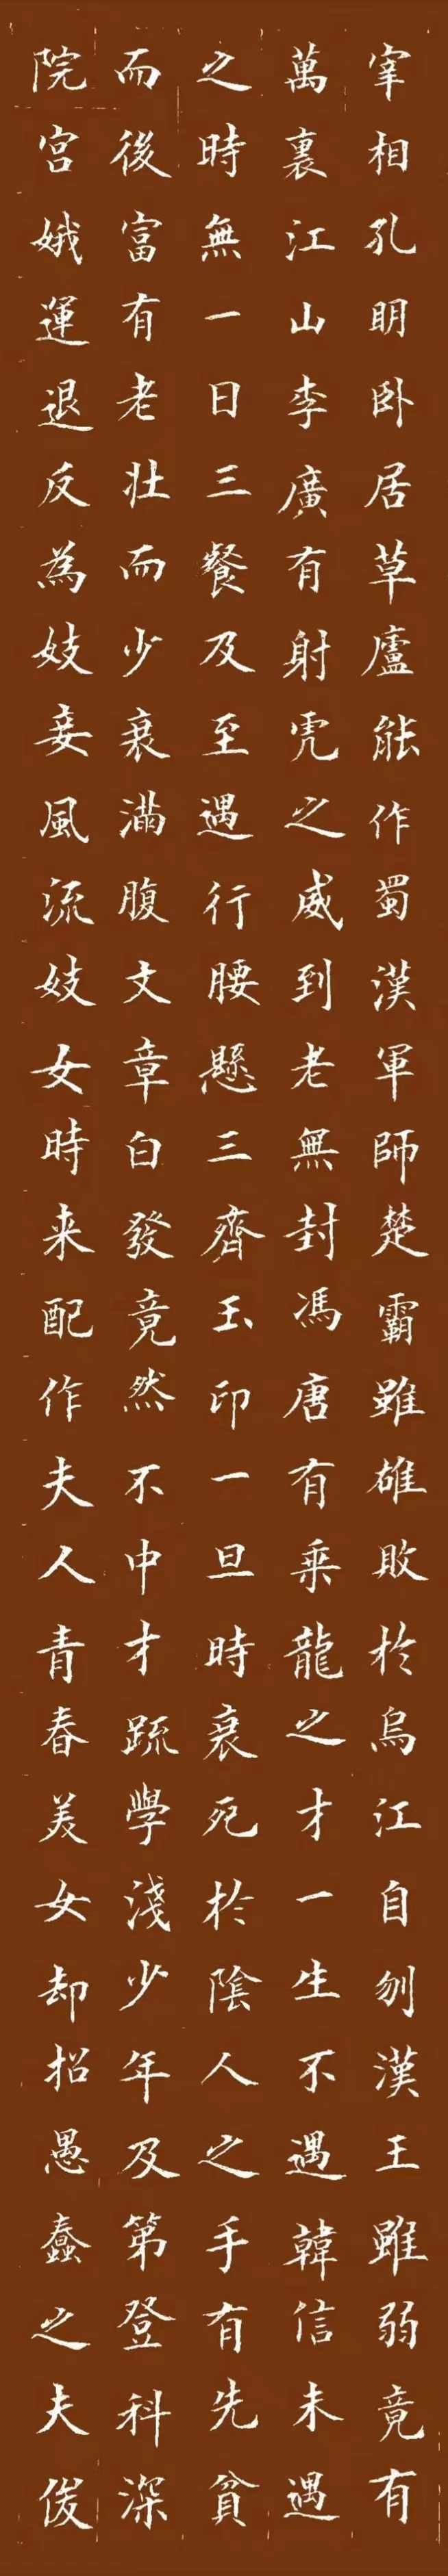 宰相孔明卧居草廬能作蜀漢軍師楚霸雖雄敗於烏江自刎漢王雖弱竟有
萬裏江山李廣有射虎之威到老無封馮唐有乘龍之才一生不遇韓信未遇
之時無一日三餐及至遇行腰懸三齊玉印一旦時衰死於陰人之手有先貧
而後富有老壯而少衰滿腹文章白發竟然不中才疏學淺少年及第登科深
院宮娥運退反為妓妾風流妓女時来配作夫人青春美女却招愚蠢之夫俊